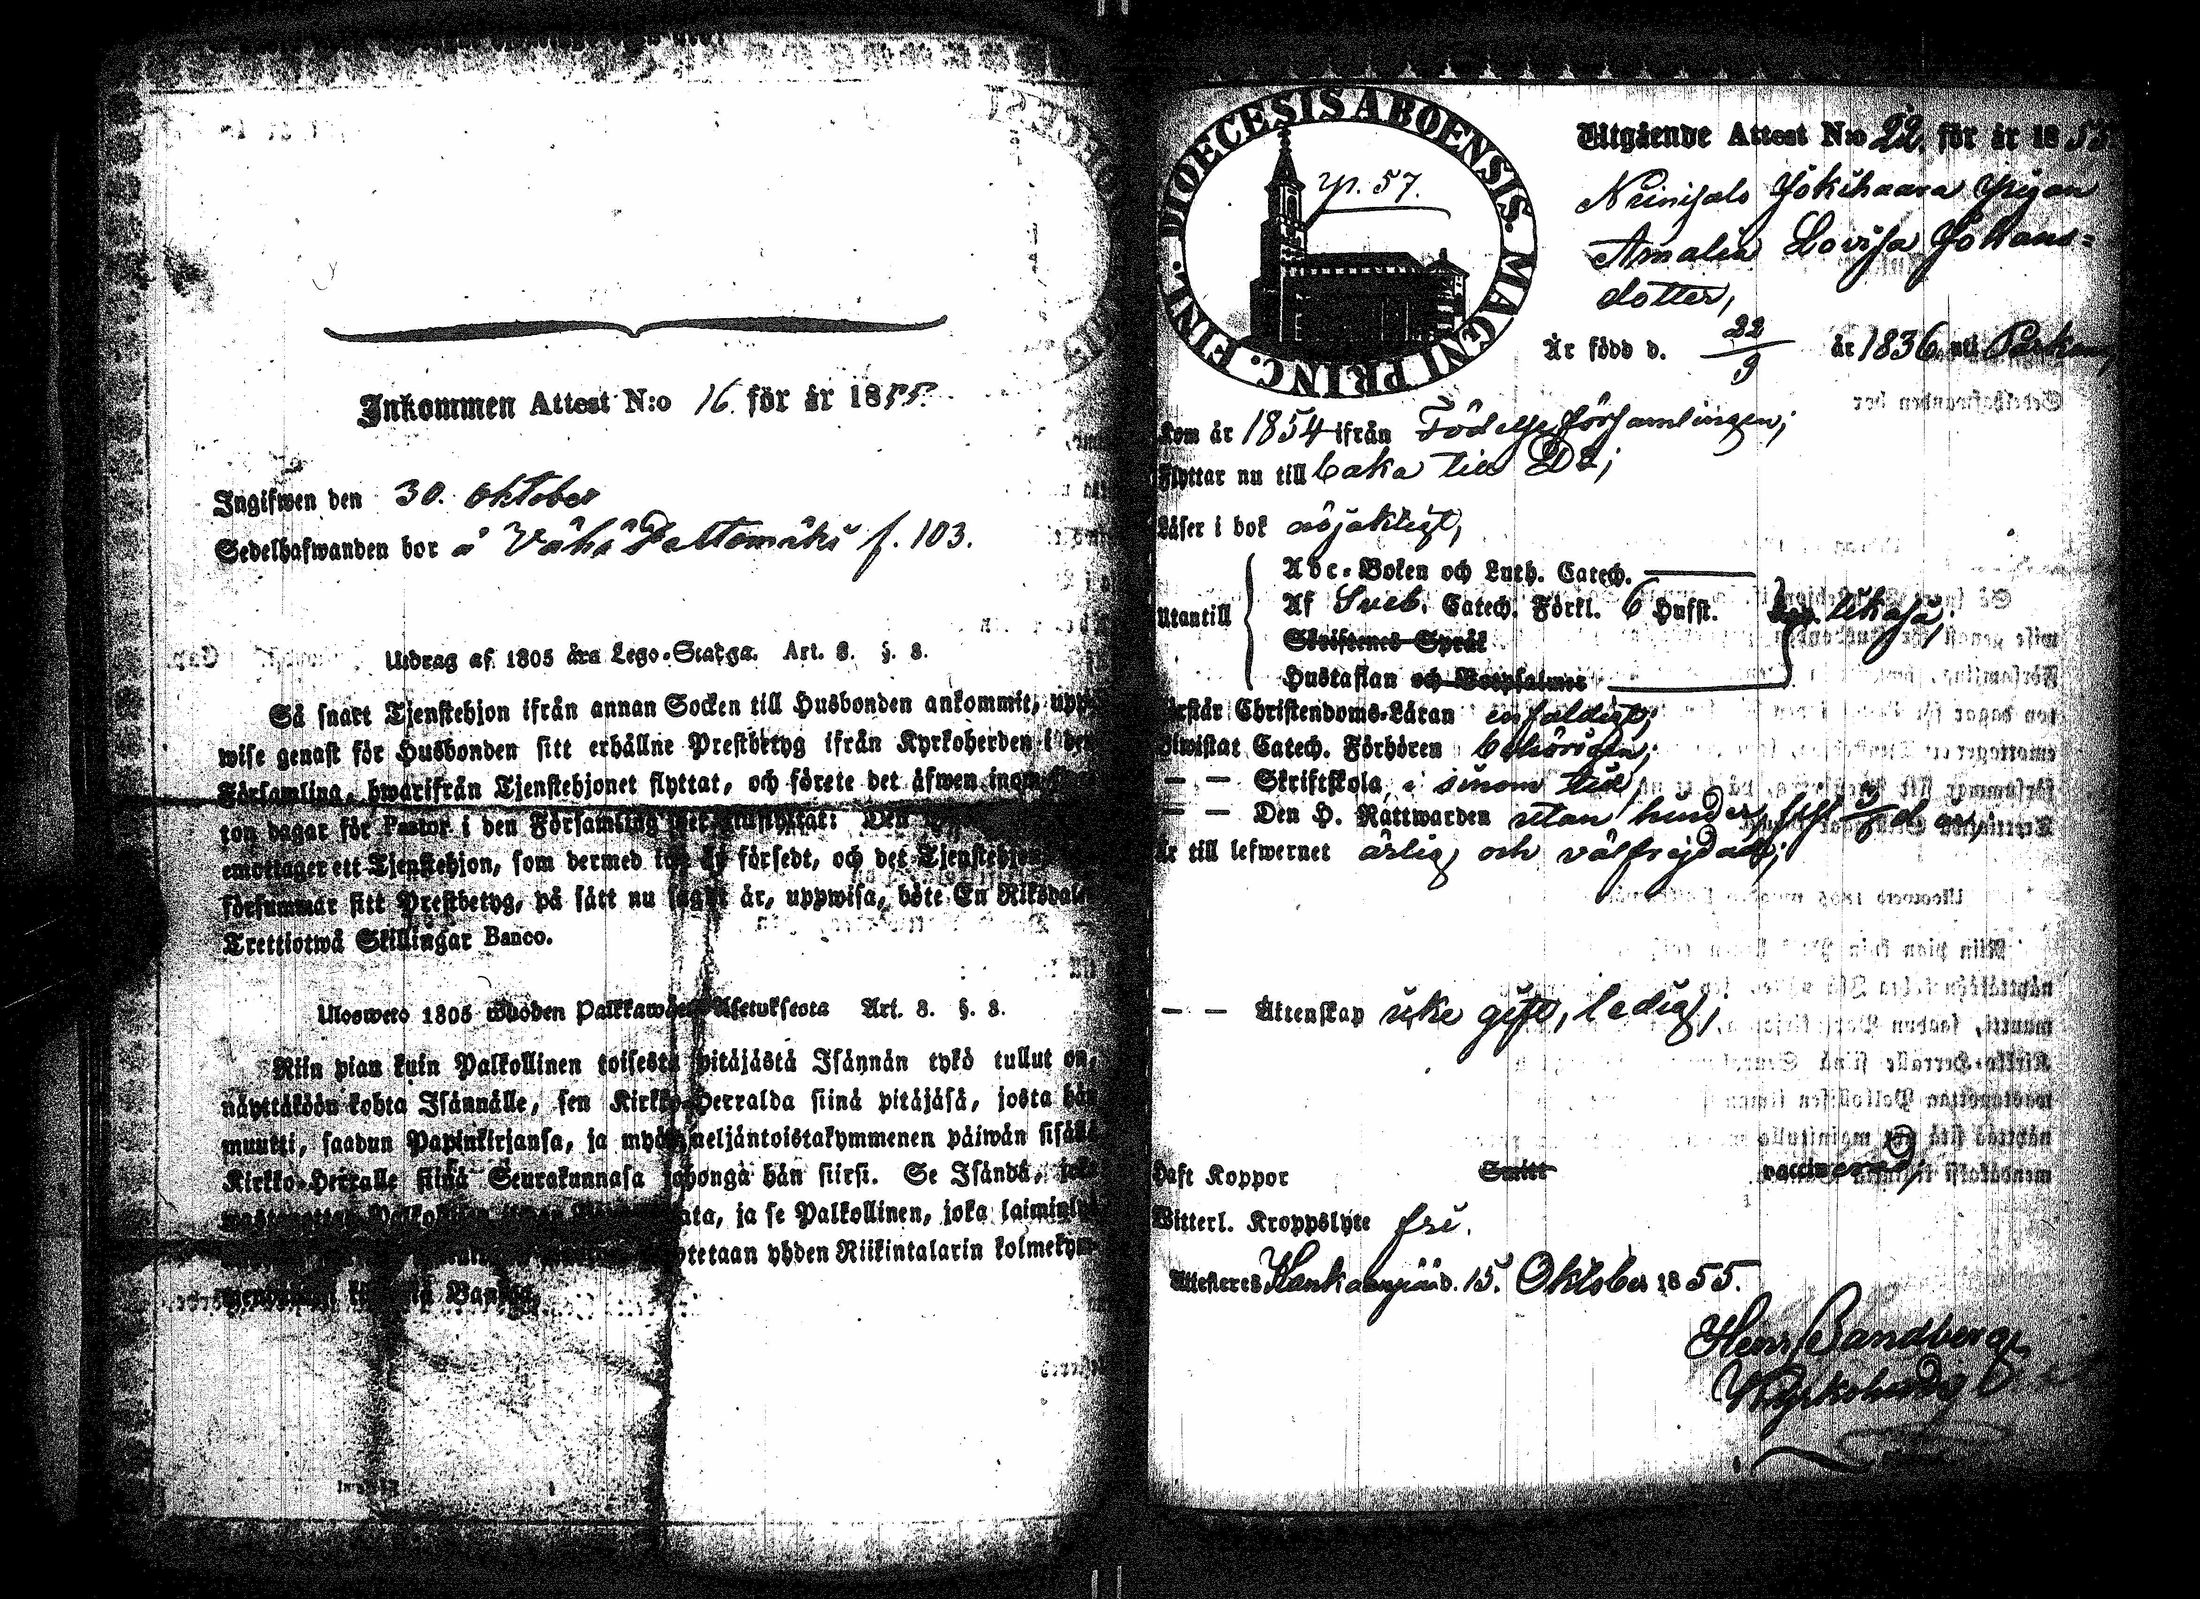 Inkommen Attest N:o 16. för år 1855.
Ingifwen den 30. oktober
Sedelhafwanden bor å Vähä f. 103.
Utdrag af 1805 åra Lego-Stadga. Art. 8. §. 8.
Så snart Tjenstehjon ifrån annan Socken till Husbonden ankommit, upp-
wise genast för Husbonden sitt erhållne Prestbetyg ifrån Kyrkoherden i den
Församling, hwarifrån Tjenstehjonet flyttat, och förete det äfwen inom
ton dagar för Pastor i den Församling Den
emottager ett Tjenstehjon, som dermed försedt, och det Tjenstehjon,
försummar sitt Prestbetyg, på sätt nu sagdt är, uppwisa, böte En Riksdaler
Trettiotwå Skillingar Banco.
Ulosweto 1805 wuoden Palkkawäen Asetuksesta Art. 8. §. 8.
Niin pian kuin Palkollinen toisesta pitäjästä Isännän tykö tullut on,
näyttäköön kohta Isännälle, sen Kirkko-Herralda siinä pitäjäsä, josta hän
muutti, saadun Papinkirjansa, ja myös neljäntoistakymmenen päiwän sisällä
Kirkko-Herralle siinä Seurakunnasa johonga hän siirsi. Se Isändä, joka
ja se Palkollinen, joka laiminlyö
yhden Riikintalarin kolmekym-
DIOECESIS ABOENSIS. MAGNI PRINC. FINL.
p. 57.
Utgående Attest N:o 22. för år 1855.
Niinisalo Jokihaara Pigan
Amalia Lovisa Johans-
dotter,
Är född d. 22/9 år 1836 uti Parkano,
Kom år 1854 ifrån Födelseförsamlingen;
Flyttar nu till baka till D:o;
Läser i bok nöjaktigt,
Utantill
Abc-Boken och Luth. Catech.
Af Sveb. Catech. Förkl. 6 Hufst. likaså;
Skriftenes Språk
Hustaflan och Botpsalmer
Förstår Christendoms-Läran enfaldigt;
Biwistat Catech. Förhören behörigen;
— — Skriftskola, i sinom tid,
— — Den H. Nattwarden utan hinder,
Är till lefwernet ärlig och välfrejdad;
— — Ägtenskap icke gift, ledig;
Haft Koppor Smitt vaccinerad,
Witterl. Kroppslyte fri.
Attesteres Kankaanpää d. 15. Oktober 1855.
Henr. Sandberg
Kyrkoherde